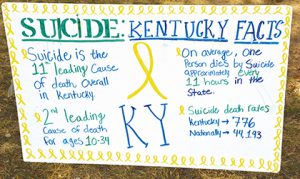 SUICIDE: KENTUCKY FACTS
Suicide is the
11th leading Cause
of death overall
in Kentucky.
2nd leading
Cause of death
for ages 10-34
KY
On average, one
Person dies by Suicide
approximately every
11 hours in the
State.
Suicide death rates
Kentucky → 776
Nationally → 44,193